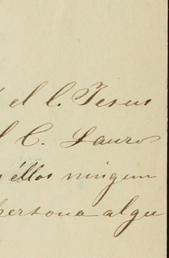 el C. Jesus
el C. Lauro
ellos ningun
persona algu